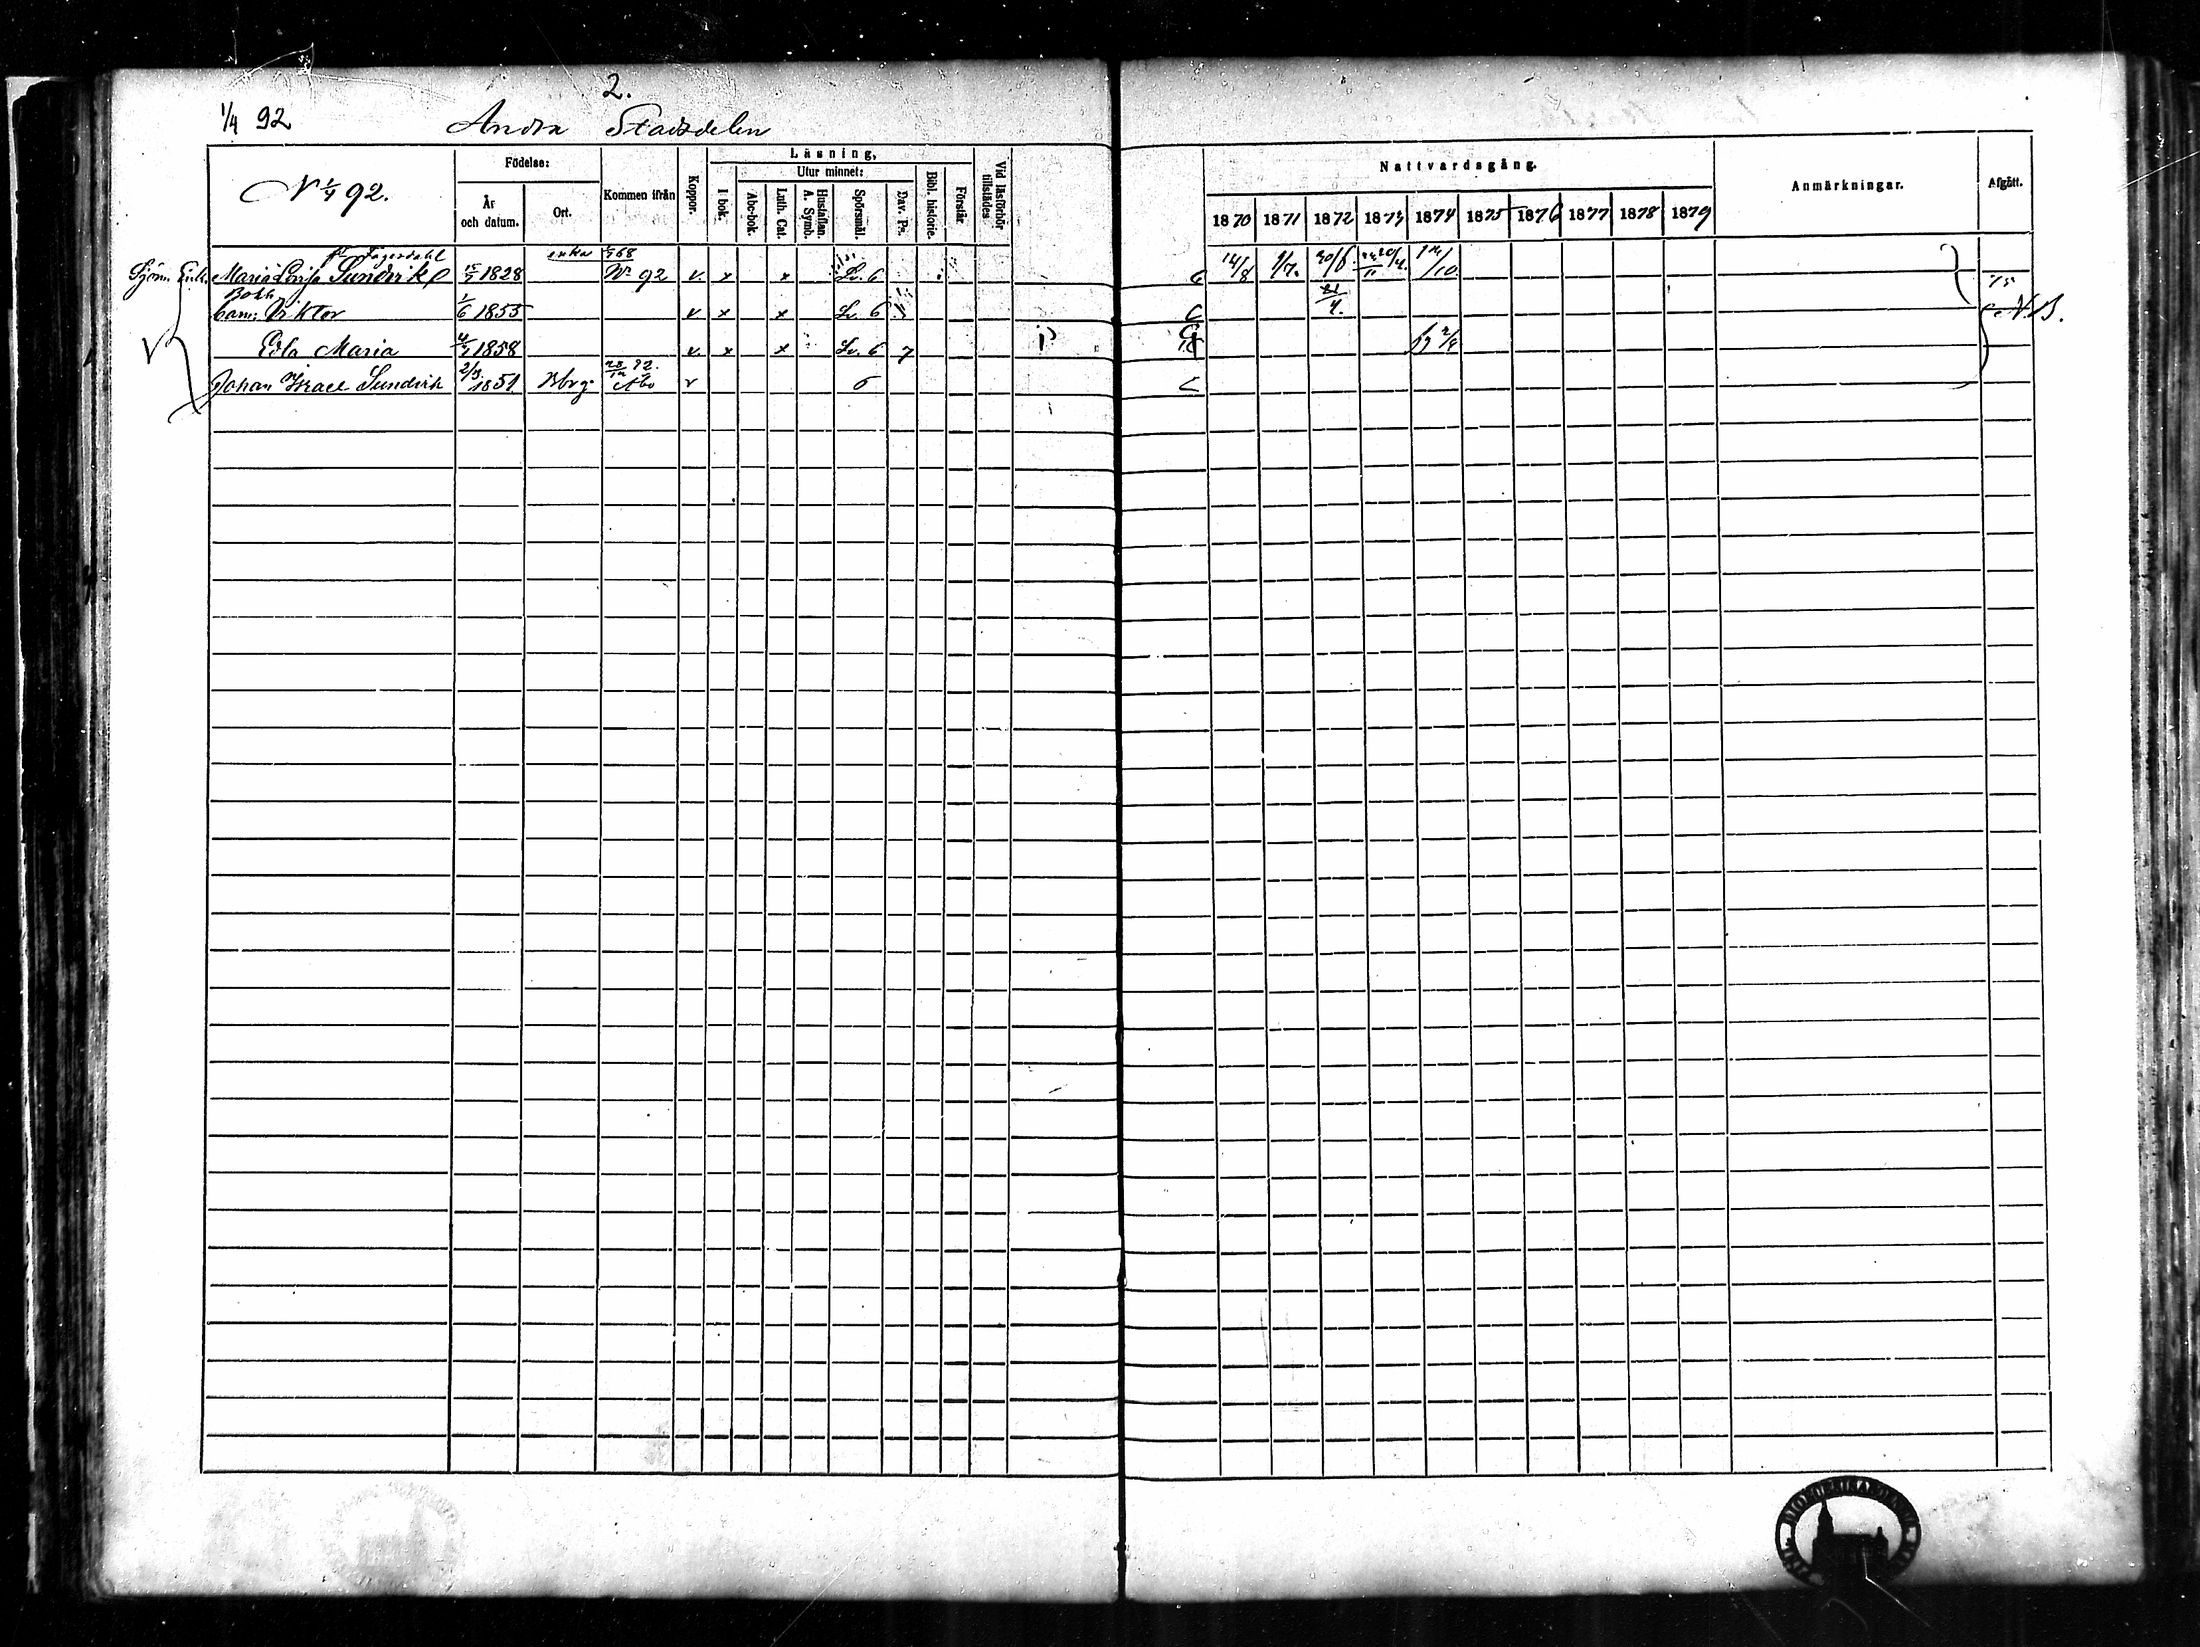 2.
1/4 92 Andra Stadsdelen
N 1/4 92.
Födelse:
År och datum.
Ort.
Kommen ifrån
Koppor.
Läsning,
I bok.
Utur minnet:
Abc-bok.
Luth. Cat.
Hustaflan. A. Symb.
Spörsmål.
Dav. Ps.
Bibl. historie.
Förstår
Vid läsförhör tillstädes
Nattvardsgång.
1870 1871 1872 1873 1874 1875 1876 1877 1878 1879
Anmärkningar.
Afgått.
f. Fagerdahl enka 68
Sjöm. Enk. Maria Lovisa Sundvik 1828 No 92 v x x Lv. 6 C 14/8 9/7. 20/6. 12/10.
Bokh.
barn: Viktor 1/6 1855 v x x Lv. 6 C 21/4. N.B.
Edla Maria 1858 v. x x Lv. 6 7 2/4
Johan Israel Sundvik 2/3. 1851 Bbrg. 72. Åbo v 6 C